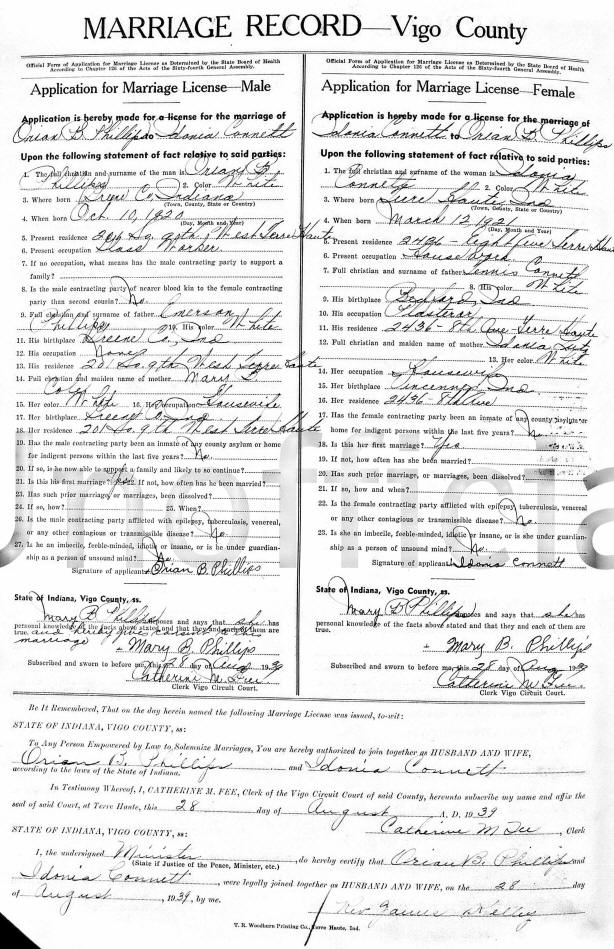 MARRIAGE RECORD—Vigo County
Official Form of Application for Marriage License as Determined by the State Board of Health
According to Chapter 126 of the Acts of the Sixty-fourth General Assembly.
Application for Marriage License—Male
Application is hereby made for a license for the marriage of
Orian B. Phillips to Idonia Connett
Upon the following statement of fact relative to said parties:
1. The full christian and surname of the man is Orian B.
Phillips 2. Color White
3. Where born Greene Co. Indiana
(Town, County, State or Country)
4. When born Oct. 10, 1920
(Day, Month and Year)
5. Present residence 201 So. 9th, West Terre Haute
6. Present occupation Glass Worker
7. If no occupation, what means has the male contracting party to support a
family?
8. Is the male contracting party of nearer blood kin to the female contracting
party than second cousin? No.
9. Full christian and surname of father Emerson
Phillips 10. His color White
11. His birthplace Greene Co., Ind
12. His occupation None
13. His residence 201 So. 9th West Terre Haute
14. Full christian and maiden name of mother Mary B.
15. Her color White 16. Her occupation Housewife
17. Her birthplace Greene Co Ind
18. Her residence 201 So. 9th West Terre Haute
19. Has the male contracting party been an inmate of any county asylum or home
for indigent persons within the last five years? No.
20. If so, is he now able to support a family and likely to so continue?
21. Is this his first marriage? Yes 22. If not, how often has he been married?
23. Has such prior marriage, or marriages, been dissolved?
24. If so, how? 25. When?
26. Is the male contracting party afflicted with epilepsy, tuberculosis, venereal,
or any other contagious or transmissible disease? No.
27. Is he an imbecile, feeble-minded, idiotic or insane, or is he under guardian-
ship as a person of unsound mind? No
Signature of applicant Orian B. Phillips
State of Indiana, Vigo County, ss.
Mary B. Phillips deposes and says that she has
personal knowledge of the facts above stated and that they and each of them are
true. and hereby gives consent to this
marriage
+ Mary B. Phillips
Subscribed and sworn to before me, this 28 day of Aug 1939
Catherine M. Fee
Clerk Vigo Circuit Court.
Official Form of Application for Marriage License as Determined by the State Board of Health
According to Chapter 126 of the Acts of the Sixty-fourth General Assembly.
Application for Marriage License—Female
Application is hereby made for a license for the marriage of
Idonia Connett to Orian B. Phillips
Upon the following statement of fact relative to said parties:
1. The full christian and surname of the woman is Idonia
Connett 2. Color White
3. Where born Terre Haute, Ind
(Town, County, State or Country)
4. When born March 12, 1921
(Day, Month and Year)
5. Present residence 2436 - Eighth Ave Terre Haute
6. Present occupation Housework
7. Full christian and surname of father Connett
8. His color White
9. His birthplace Bedford, Ind
10. His occupation Plasterer
11. His residence 2436 - 8th Ave - Terre Haute
12. Full christian and maiden name of mother Idonia
13. Her color White
14. Her occupation Housewife
15. Her birthplace Vincennes Ind.
16. Her residence 2436 8th Ave
17. Has the female contracting party been an inmate of any county asylum or
home for indigent persons within the last five years? No.
18. Is this her first marriage? Yes
19. If not, how often has she been married?
20. Has such prior marriage, or marriages, been dissolved?
21. If so, how and when?
22. Is the female contracting party afflicted with epilepsy, tuberculosis, venereal,
or any other contagious or transmissible disease? No.
23. Is she an imbecile, feeble-minded, idiotic or insane, or is she under guardian-
ship as a person of unsound mind? No.
Signature of applicant Idonia Connett
State of Indiana, Vigo County, ss.
Mary B. Phillips deposes and says that she has
personal knowledge of the facts above stated and that they and each of them are
true.
+ Mary B. Phillips
Subscribed and sworn to before me, this 28 day of Aug 1939
Catherine M. Fee
Clerk Vigo Circuit Court.
Be It Remembered, That on the day herein named the following Marriage License was issued, to-wit:
STATE OF INDIANA, VIGO COUNTY, ss:
To Any Person Empowered by Law to Solemnize Marriages, You are hereby authorized to join together as HUSBAND AND WIFE,
Orian B. Phillips and Idonia Connett
according to the laws of the State of Indiana.
In Testimony Whereof, I, CATHERINE M. FEE, Clerk of the Vigo Circuit Court of said County, hereunto subscribe my name and affix the
seal of said Court, at Terre Haute, this 28 day of August A. D. 1939
Catherine M Fee, Clerk
STATE OF INDIANA, VIGO COUNTY, ss:
I, the undersigned Minister, do hereby certify that Orian B. Phillips and
(State if Justice of the Peace, Minister, etc.)
Idonia Connett, were legally joined together as HUSBAND AND WIFE, on the 28 day
of August, 1939, by me.
Rev James Kelley
T. R. Woodburn Printing Co., Terre Haute, Ind.